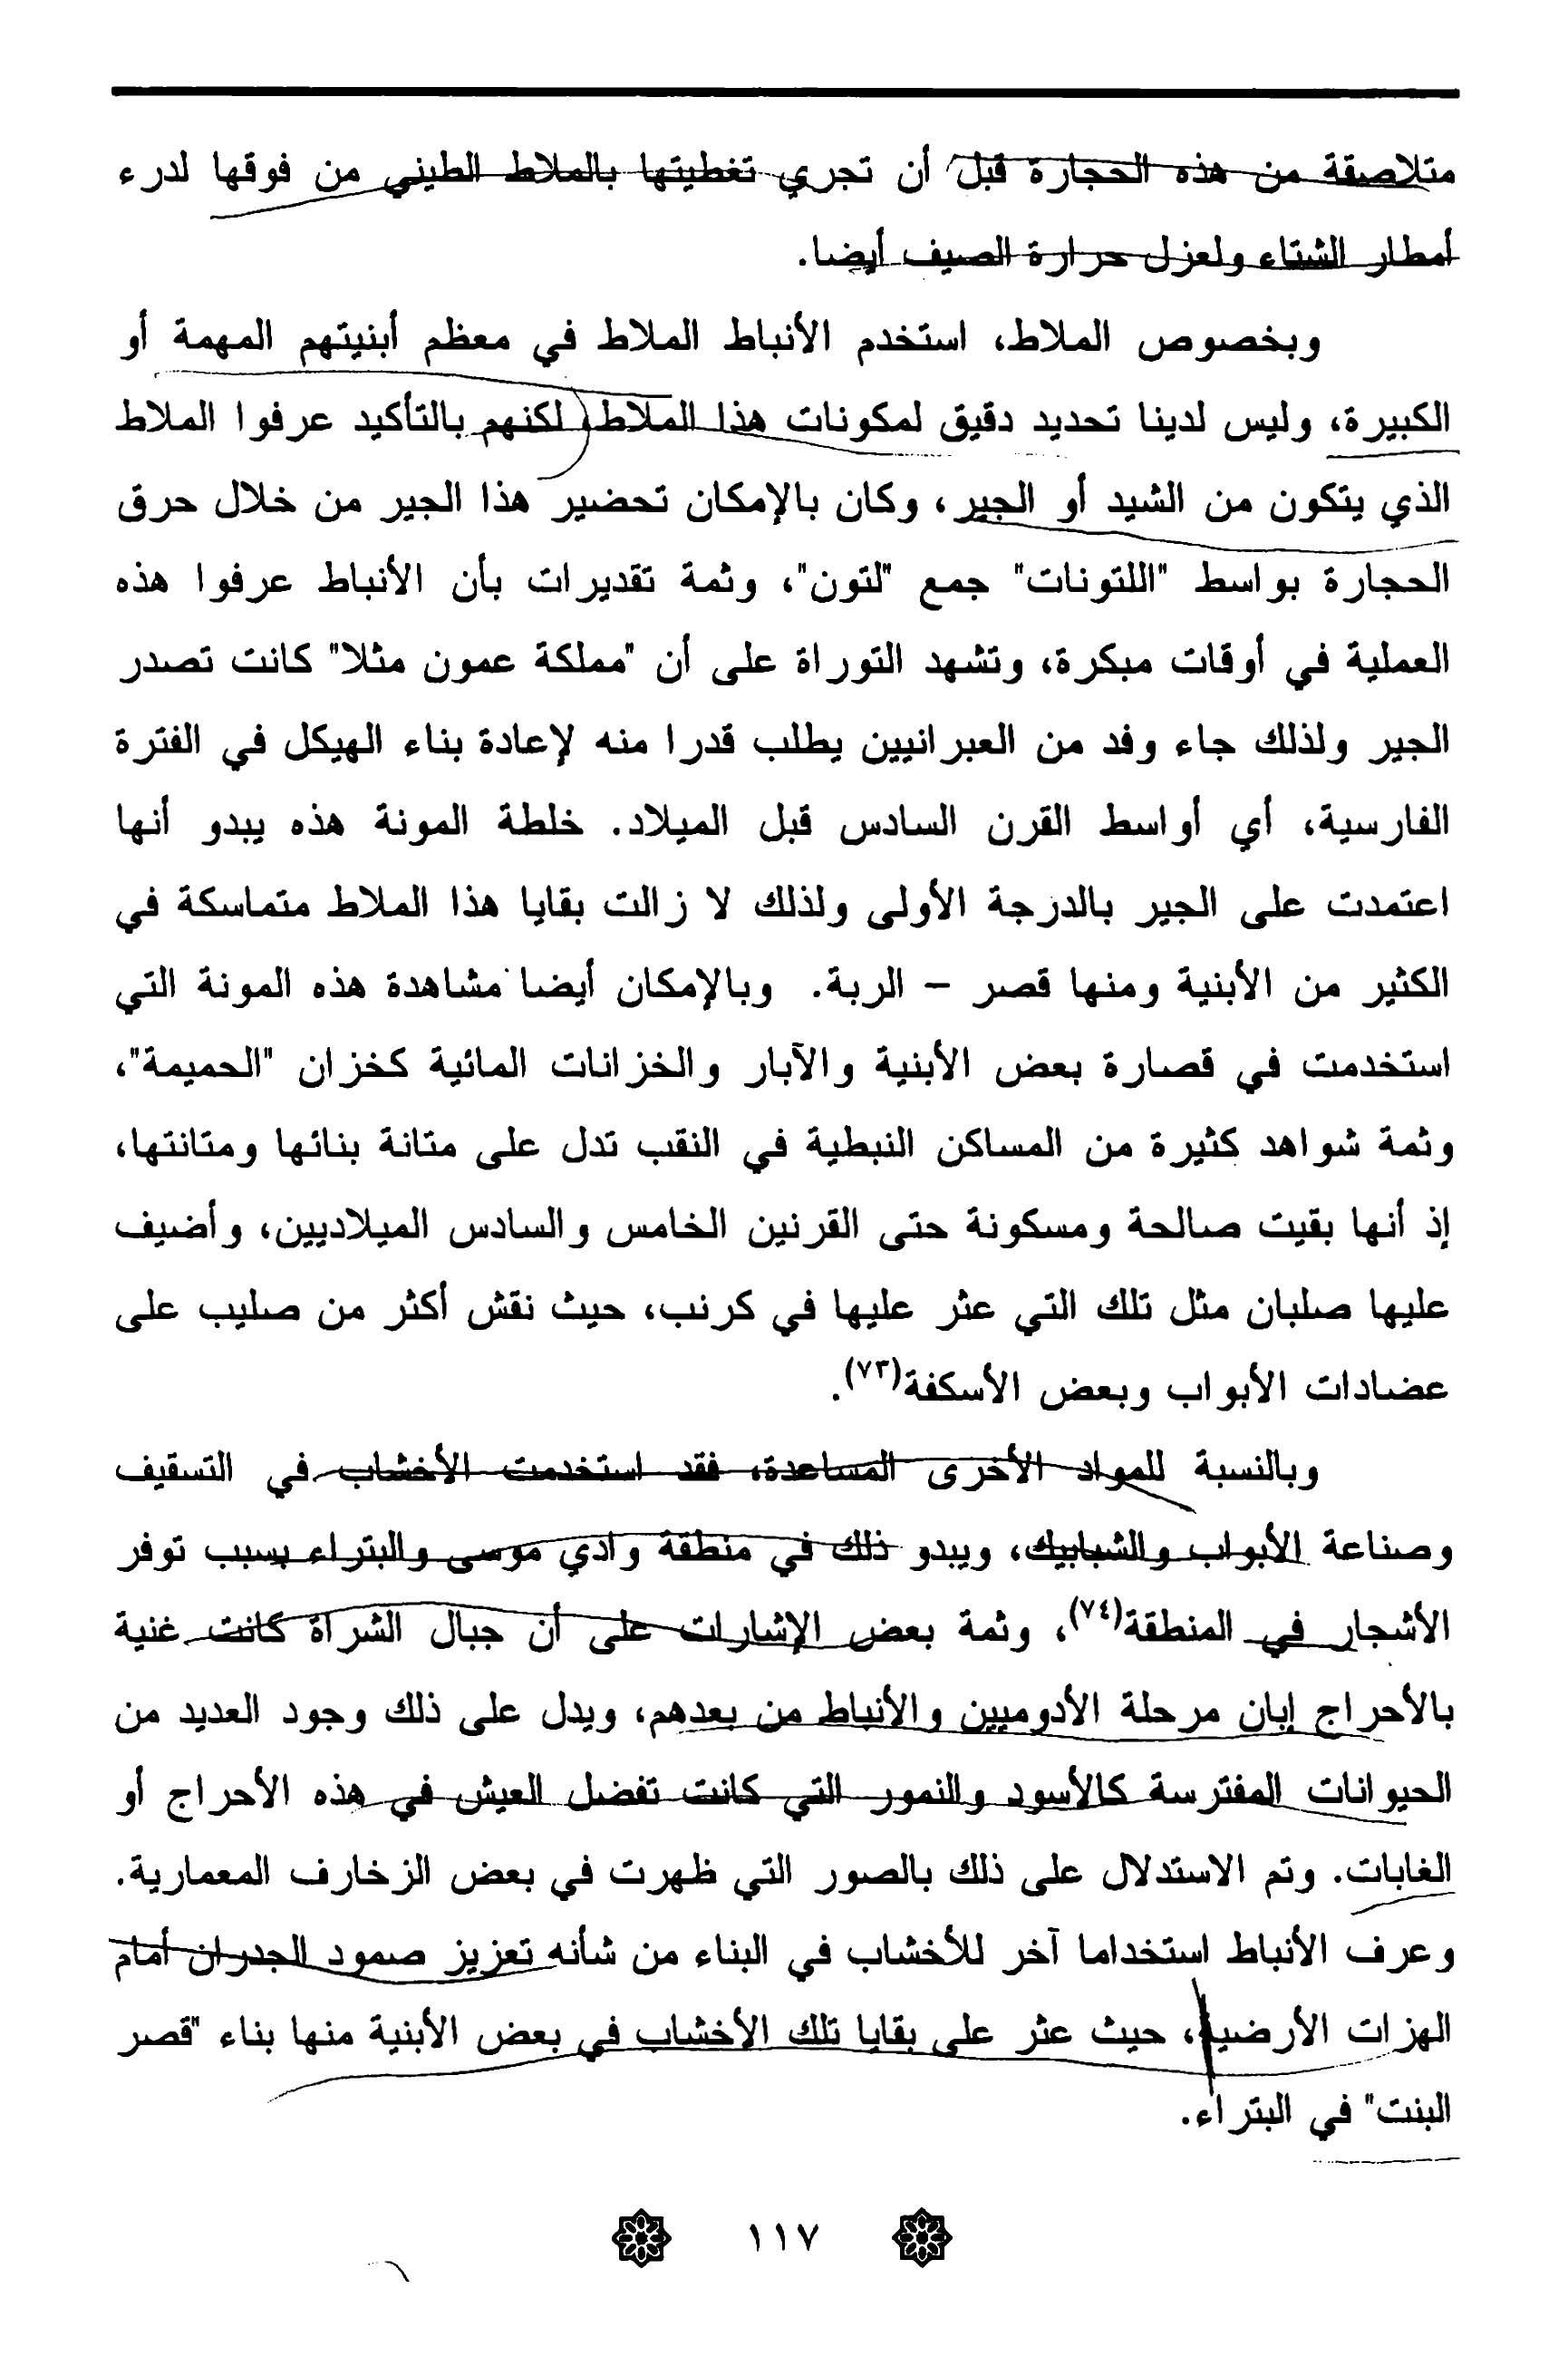 متلاصقة من هذه الحجارة قبل أن تجري تغطيتها بالملاط الطيني من فوقها لدرء
أمطار الشتاء ولعزل حرارة الصيف أيضا.
وبخصوص الملاط، استخدم الأنباط الملاط في معظم أبنيتهم المهمة أو
الكبيرة، وليس لدينا تحديد دقيق لمكونات هذا الملاط، لكنهم بالتأكيد عرفوا الملاط
الذي يتكون من الشيد أو الجير، وكان بالإمكان تحضير هذا الجير من خلال حرق
الحجارة بواسط "اللتونات" جمع "لتون"، وثمة تقديرات بأن الأنباط عرفوا هذه
العملية في أوقات مبكرة، وتشهد التوراة على أن "مملكة عمون مثلا" كانت تصدر
الجير ولذلك جاء وفد من العبرانيين يطلب قدرا منه لإعادة بناء الهيكل في الفترة
الفارسية، أي أواسط القرن السادس قبل الميلاد. خلطة المونة هذه يبدو أنها
اعتمدت على الجير بالدرجة الأولى ولذلك لا زالت بقايا هذا الملاط متماسكة في
الكثير من الأبنية ومنها قصر – الربة. وبالإمكان أيضا مشاهدة هذه المونة التي
استخدمت في قصارة بعض الأبنية والآبار والخزانات المائية كخزان "الحميمة"،
وثمة شواهد كثيرة من المساكن النبطية في النقب تدل على متانة بنائها ومتانتها،
إذ أنها بقيت صالحة ومسكونة حتى القرنين الخامس والسادس الميلاديين، وأضيف
عليها صلبان مثل تلك التي عثر عليها في كرنب، حيث نقش أكثر من صليب على
عضادات الأبواب وبعض الأسكفة(٧٣).
وبالنسبة للمواد الأخرى المساعدة، فقد استخدمت الأخشاب في التسقيف
وصناعة الأبواب والشبابيك، ويبدو ذلك في منطقة وادي موسى والبتراء بسبب توفر
الأشجار في المنطقة(٧٤)، وثمة بعض الإشارات على أن جبال الشراة كانت غنية
بالأحراج إبان مرحلة الأدوميين والأنباط من بعدهم، ويدل على ذلك وجود العديد من
الحيوانات المفترسة كالأسود والنمور التي كانت تفضل العيش في هذه الأحراج أو
الغابات. وتم الاستدلال على ذلك بالصور التي ظهرت في بعض الزخارف المعمارية.
وعرف الأنباط استخداما آخر للأخشاب في البناء من شأنه تعزيز صمود الجدران أمام
الهزات الأرضية، حيث عثر على بقايا تلك الأخشاب في بعض الأبنية منها بناء "قصر
البنت" في البتراء.
١١٧